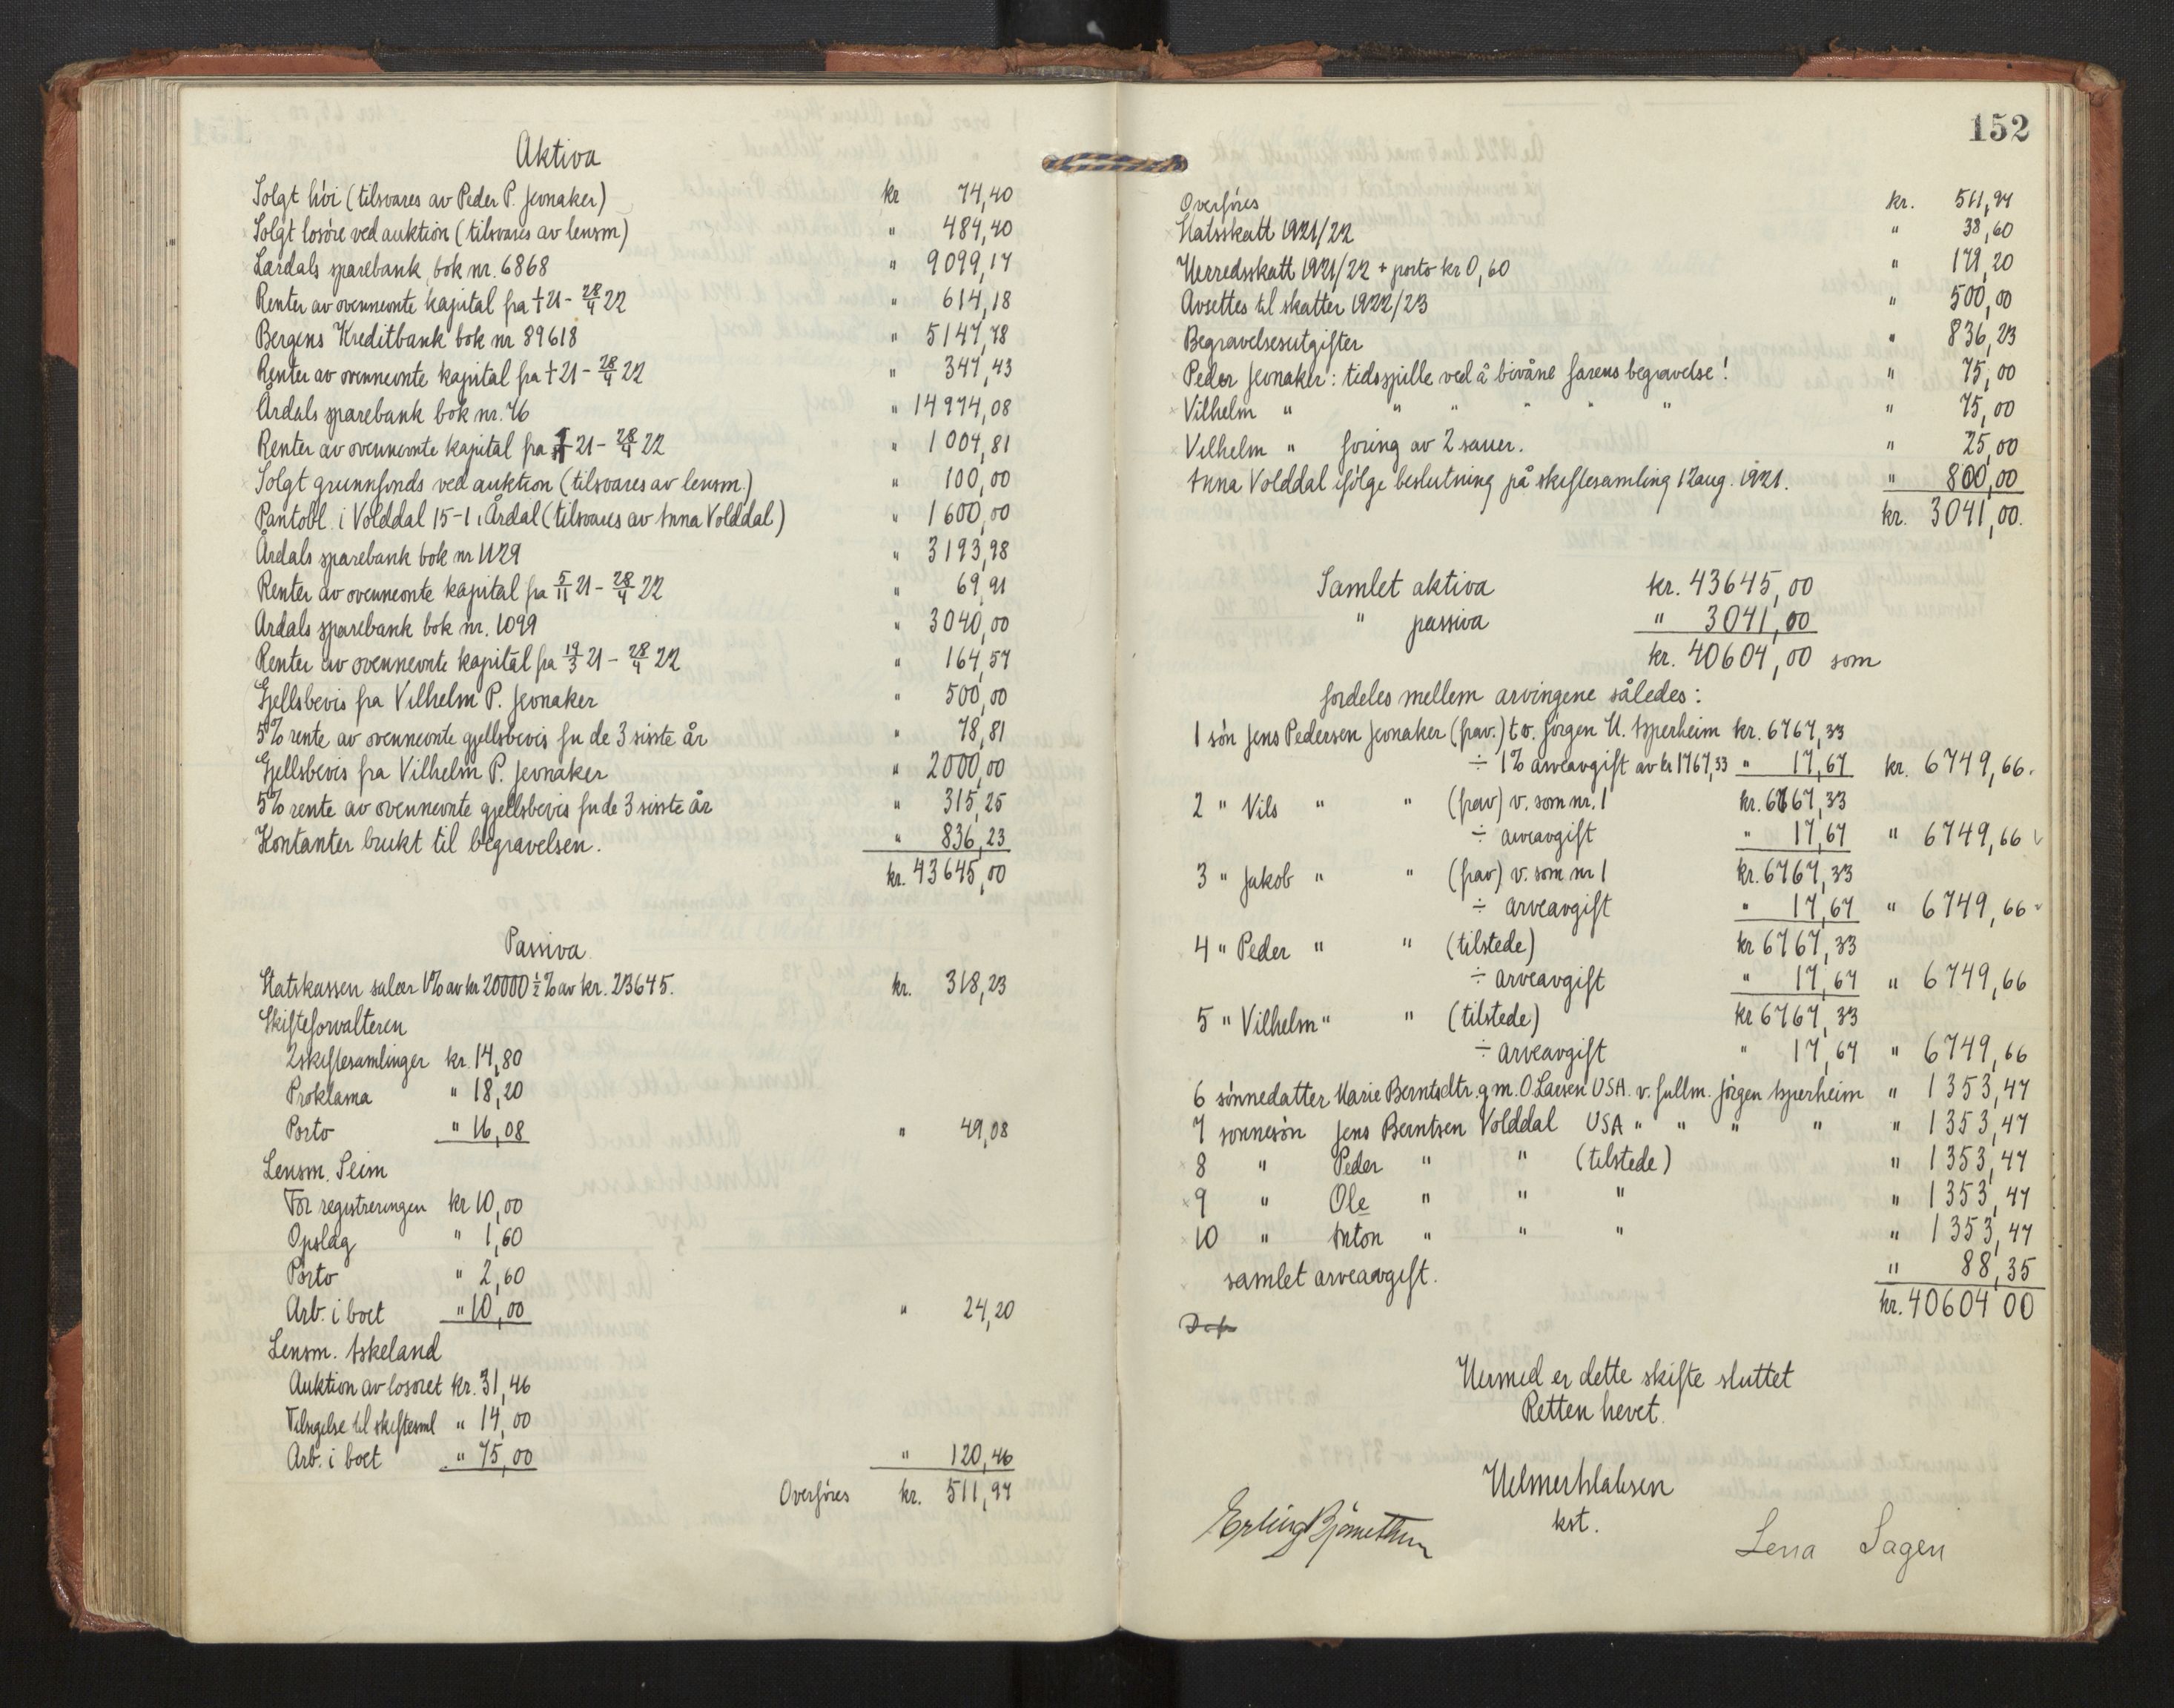 Aktiva
Solgt höi (tilsvares av Peder P. Jevnaker) kr 74,40
Solgt losöre ved auktion (tilsvares av lensm) " 484,40
Lærdals sparebank, bok nr. 6868 " 9099,17
Renter av ovennevnte kapital fra 1/1 21 - 28/4 22 " 614,18
Bergens Kreditbank bok nr 89618 " 5147,78
Renter av ovennevnte kapital fra 1/1 21 - 28/4 22 " 347,43
Årdals sparebank bok nr. 76 " 14974,08
Renter av ovennevnte kapital fra 1/1 21 - 28/4 22 " 1004,81
Solgt grunnfonds ved auktion (tilsvares av lensm.) " 100,00
Pantobl. i Volddal 15-1 i Årdal (tilsvares av Anna Volddal) " 1600,00
Årdals sparebank bok nr 1129 " 3193,98
Renter av ovennevnte kapital fra 5/11 21 - 28/4 22 " 69,91
Årdals sparebank bok nr. 1099 " 3040,00
Renter av ovennevnte kapital fra 19/3 21 - 28/4 22 " 164,57
Gjellsbevis fra Vilhelm P. Jevnaker " 500,00
5% rente av ovennevnte gjellsbevis fu de 3 sisste år " 78,81
Gjellsbevis fra Vilhelm P. Jevnaker " 2000,00
5% rente av ovennevnte gjellsbevis fu de 3 sisste år " 315,25
Kontanter brukt til begravelsen. " 836,23
kr. 43645,00
Passiva
Statskassen salær 1% av kr 20000 1/2% av kr. 23645. kr. 318,23
Skifteforvalteren
2 skiftesamlinger kr. 14,80
Proklama " 18,20
Porto " 16,08 " 49,08
Lensm. Seim
For registreringen kr 10,00
Opslag " 1,60
Porto " 2,60
Arb. i boet " 10,00 " 24,20
Lensm. Askeland
Auktion av losöret kr. 31,46
Tilsigelse til skiftesml " 14,00
Arb. i boet " 75,00 " 120,46
Overföres kr. 511,97
152
Overföres kr. 511,97
Statsskatt 1921/22 " 38,60
Herredsskatt 1921/22 + porto kr 0,60 " 179,20
Avsettes til skatter 1922/23 " 500,00
Begravelsesutgifter " 836,23
Peder Jevnaker: tidsspille ved å bivåne farens begravelse! " 75,00
Vilhelm " " " " " " " 75,00
Vilhelm " foring av 2 sauer. " 25,00
Anna Volddal ifölge beslutning på skiftesamling 12 aug. 1921. " 800,00
kr. 3041,00.
Samlet aktiva kr. 43645,00
" passiva " 3041,00
kr. 40604,00 som
fordeles mellem arvingene således:
1 sön Jens Pedersen Jevnaker (frav.) t.v. Jörgen H. Asperheim kr. 6767,33
÷ 1% arveavgift av kr 1767,33 " 17,67 kr. 6749,66.
2 " Nils " " (frav) v. som nr. 1 kr. 6767,33
÷ arveavgift " 17,67 " 6749,66
3 " Jakob " " (frav) v. som nr 1 kr. 6767,33
÷ arveavgift " 17,67 " 6749,66
4 " Peder " " (tilstede) kr 6767,33
÷ arveavgift " 17,67 " 6749,66
5 " Vilhelm " " (tilstede) kr 6767,33
÷ arveavgift " 17,67 " 6749,66
6 sönnedatter Marie Berntsdtr. g.m. O Larsen USA. v. fullm. Jörgen Asperheim " 1353,47
7 sonnesön Jens Berntsen Volddal USA " " " " " 1353,47
8 " Peder " " (tilstede) " 1353,47
9 " Ole " " " " 1353,47
10 " Anton " " " " 1353,47
samlet arveavgift. " 88,35
kr. 40604 00
Hermed er dette skifte sluttet
Retten hevet.
kst.
Lena Sagen